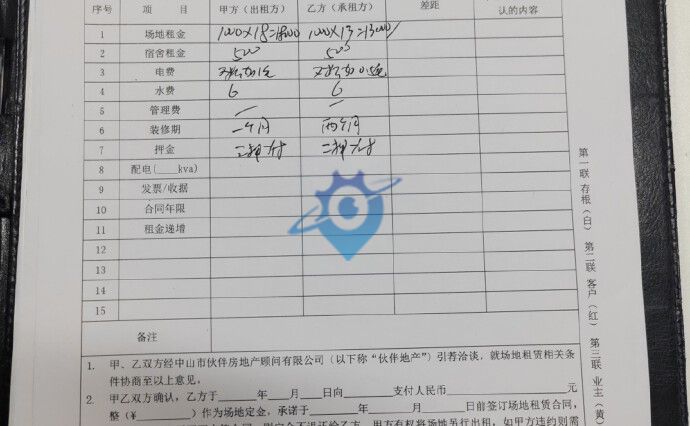 序号 项 目 甲方（出租方） 乙方（承租方） 差距 认的内容
1 场地租金 1000×18=18000 1000×13=13000/
2 宿舍租金 500 500
3 电费
4 水费 6 6
5 管理费 — —
6 装修期 一个月 两个月
7 押金 二押一付 二押一付
8 配电(____kva)
9 发票/收据
10 合同年限
11 租金递增
12
13
14
15
备注
1. 甲、乙双方经中山市伙伴房地产顾问有限公司（以下称“伙伴地产”）引荐洽谈，就场地租赁相关条
件协商至以上意见。
2. 甲乙双方确认，乙方于____年__月__日向____支付人民币____元
整（¥____）作为场地定金，承诺于____年____月____日前签订场地租赁合同，
第一联 存根（白） 第二联 客户（红） 第三联 业主（黄）